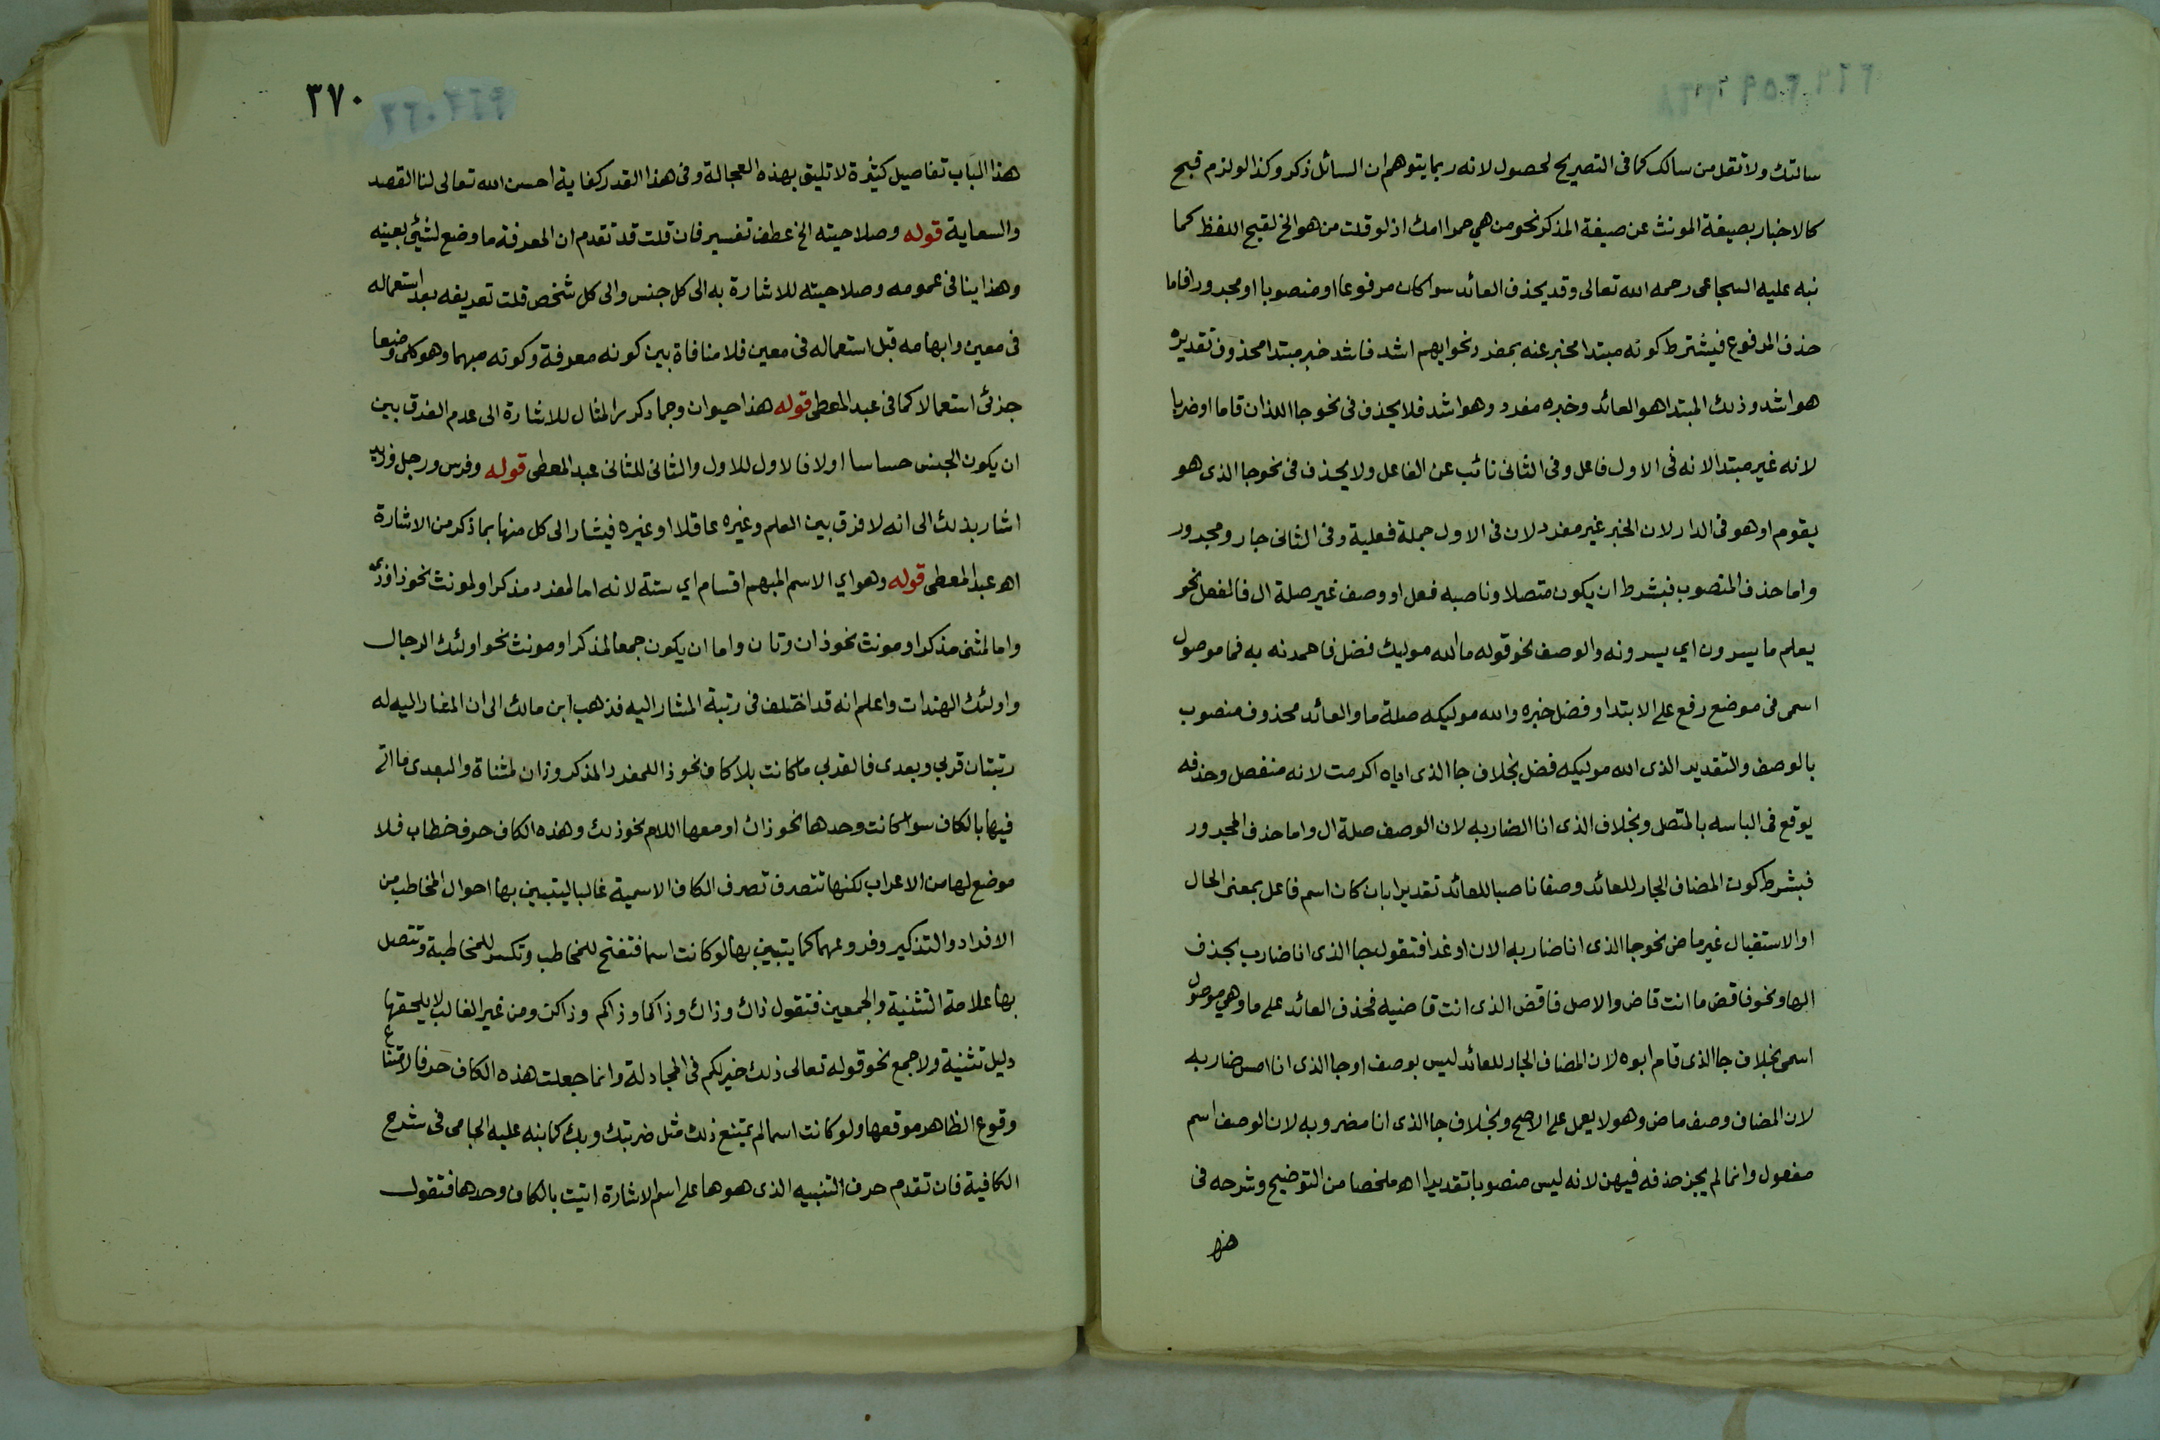 سالتك ولا تقل من سالك كما في التصريح لحصول لانه ربما يتوهم ان السائل ذكر وكذا لو لزم قبح
كالاخبار بصيغة المونث عن صيغة المذكر نحو من هي حمرا امك اذ لو قلت من هو الخ لقبح اللفظ كما
نبه عليه السجاعي رحمه الله تعالى وقد يحذف العائد سوا كان مرفوعا او منصوبا او مجرورا فاما
حذف المرفوع فيشترط كونه مبتدا مخبر عنه بمفرد نحو ايهم اشد فاشد خبر مبتدا محذوف تقديره
هو اشد وذلك المبتدا هو العائد وخبره مفرد وهو اشد فلا يحذف في نحو جا اللذان قاما او ضربا
لانه غير مبتدا لانه في الاول فاعل وفي الثاني نائب عن الفاعل ولا يحذف في نحو جا الذي هو
يقوم او هو في الدار لان الخبر غير مفرد لان في الاول جملة فعلية وفي الثاني جار ومجرور
واما حذف المنصوب فبشرط ان يكون متصلا وناصبه فعل او وصف غير صلة ال فالفعل نحو
يعلم ما يسرون اي يسرونه والوصف نحو قوله ما الله موليك فضل فاحمدنه به فما موصول
اسمي في موضع رفع على الابتدا وفضل خبره والله موليكه صلة ما والعائد محذوف منصوب
بالوصف والتقدير الذي الله موليكه فضل بخلاف جا الذي اياه اكرمت لانه منفصل وحذفه
يوقع في الباسه بالمتصل وبخلاف الذي انا الضاربه لان الوصف صلة ال واما حذف المجرور
فبشرط كون المضاف الجار للعائد وصفا ناصبا للعائد تقديرا بان كان اسم فاعل بمعنى الحال
او الاستقبال غير ماض نحو جا الذي انا ضاربه الان او غدا فتقول جا الذي انا ضارب بحذف
الها ونحو فاقض ما انت قاض والاصل فاقض الذي انت قاضيه فحذف العائد على ما وهي موصول
اسمي بخلاف جا الذي قام ابوه لان المضاف الجار للعائد ليس بوصف او جا الذي انا امس ضاربه
لان المضاف وصف ماض وهو لا يعمل على الاصح وبخلاف جا الذي انا مضروبه لان الوصف اسم
مفعول وانما لم يجز حذفه فيهن لانه ليس منصوبا تقديرا اه ملخصا من التوضيح وشرحه في
هذا
٣٧٠
هذا الباب تفاصيل كثيرة لا تليق بهذه العجالة وفي هذا القدر كفاية احسن الله تعالى لنا القصد
والسعاية قوله وصلاحيته الخ عطف تفسير فان قلت قد تقدم ان المعرفة ما وضع لشيئ بعينه
وهذا ينافي عمومه وصلاحيته للاشارة به الى كل جنس والى كل شخص قلت تعريفه بعد استعماله
في معين وابهامه قبل استعماله في معين فلا منافاة بين كونه معرفة وكونه مبهما وهو كلي وضعا
جزئ استعمالا كما في عبد المعطي قوله هذا حيوان وجماد كرر المثال للاشارة الى عدم الفرق بين
ان يكون الجنس حساسا اولا فالاول للاول والثاني للثاني عبد المعطي قوله وفرس ورجل وزيد
اشار بذلك الى انه لا فرق بين العلم وغيره عاقلا او غيره فيشار الى كل منها بما ذكر من الاشارة
اه عبد المعطي قوله وهو اي الاسم المبهم اقسام اي ستة لانه اما لمفرد مذكر او لمونث نحو ذا وذي
واما لمثنى مذكر او مونث نحو ذان وتان واما ان يكون جمعا لمذكر او مونث نحو اولئك الرجال
واولئك الهندات واعلم انه قد اختلف في رتبة المشار اليه فذهب ابن مالك الى ان المشار اليه له
رتبتان قربي وبعدى فالقربي ما كانت بلا كاف نحو ذا للمفرد المذكر وذان لمثناة والبعدى ما اتى
فيها بالكاف سوا كانت وحدها نحو ذاك او معها اللام نحو ذلك وهذه الكاف حرف خطاب فلا
موضع لها من الاعراب لكنها تتصرف تصرف الكاف الاسمية غالبا ليتبين بها احوال المخاطب من
الافراد والتذكير وفروعهما كما يتبين بها لو كانت اسما فتفتح للمخاطب وتكسر للمخاطبة وتتصل
بها علامة التثنية والجمعين فتقول ذاك وذاك وذاكما وذاكم وذاكن ومن غير الغالب لا يلحقها
دليل تثنية ولا جمع نحو قوله تعالى ذلك خير لكم في المجادلة وانما جعلت هذه الكاف حرفا لامتناع
وقوع الظاهر موقعها ولو كانت اسما لم يمتنع ذلك مثل ضربتك وبك كما نبه عليه الجامي في شرح
الكافية فان تقدم حرف التنبيه الذي هو ها على اسم الاشارة اتيت بالكاف وحدها فتقول